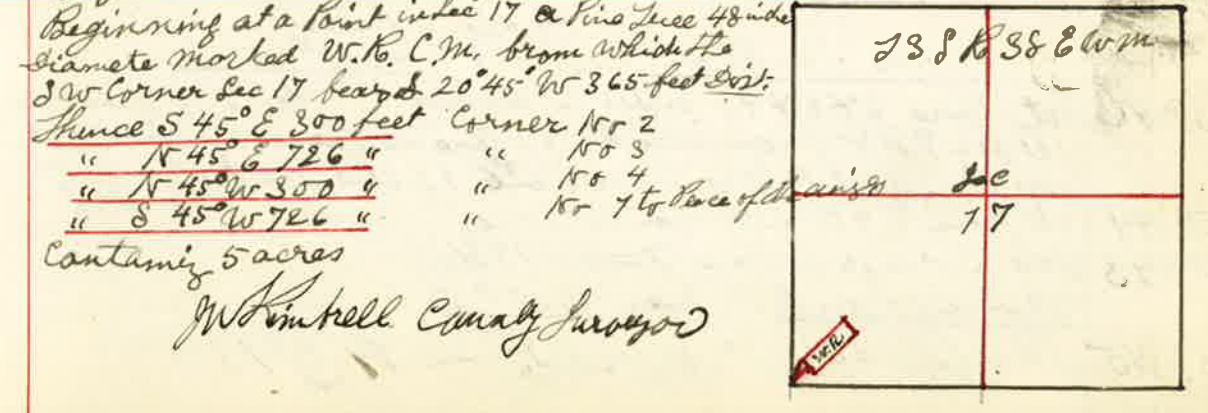 Beginning at a Point in Sec 17 a Pine Tree 48 inche
Diamete Marked W.R. C.M. from which the
S W Corner Sec 17 bears S 20°45' W 365 feet Dist.
Thence S 45° E 300 feet Corner No 2
" N 45° E 726 " " No 3
" N 45° W 300 " " No 4
" S 45° W 726 " " No 1 to Place of
Containing 5 acres
J W Kimbrell County Surveyor
T 3 S R 38 E W M
Sec
17
W.R.